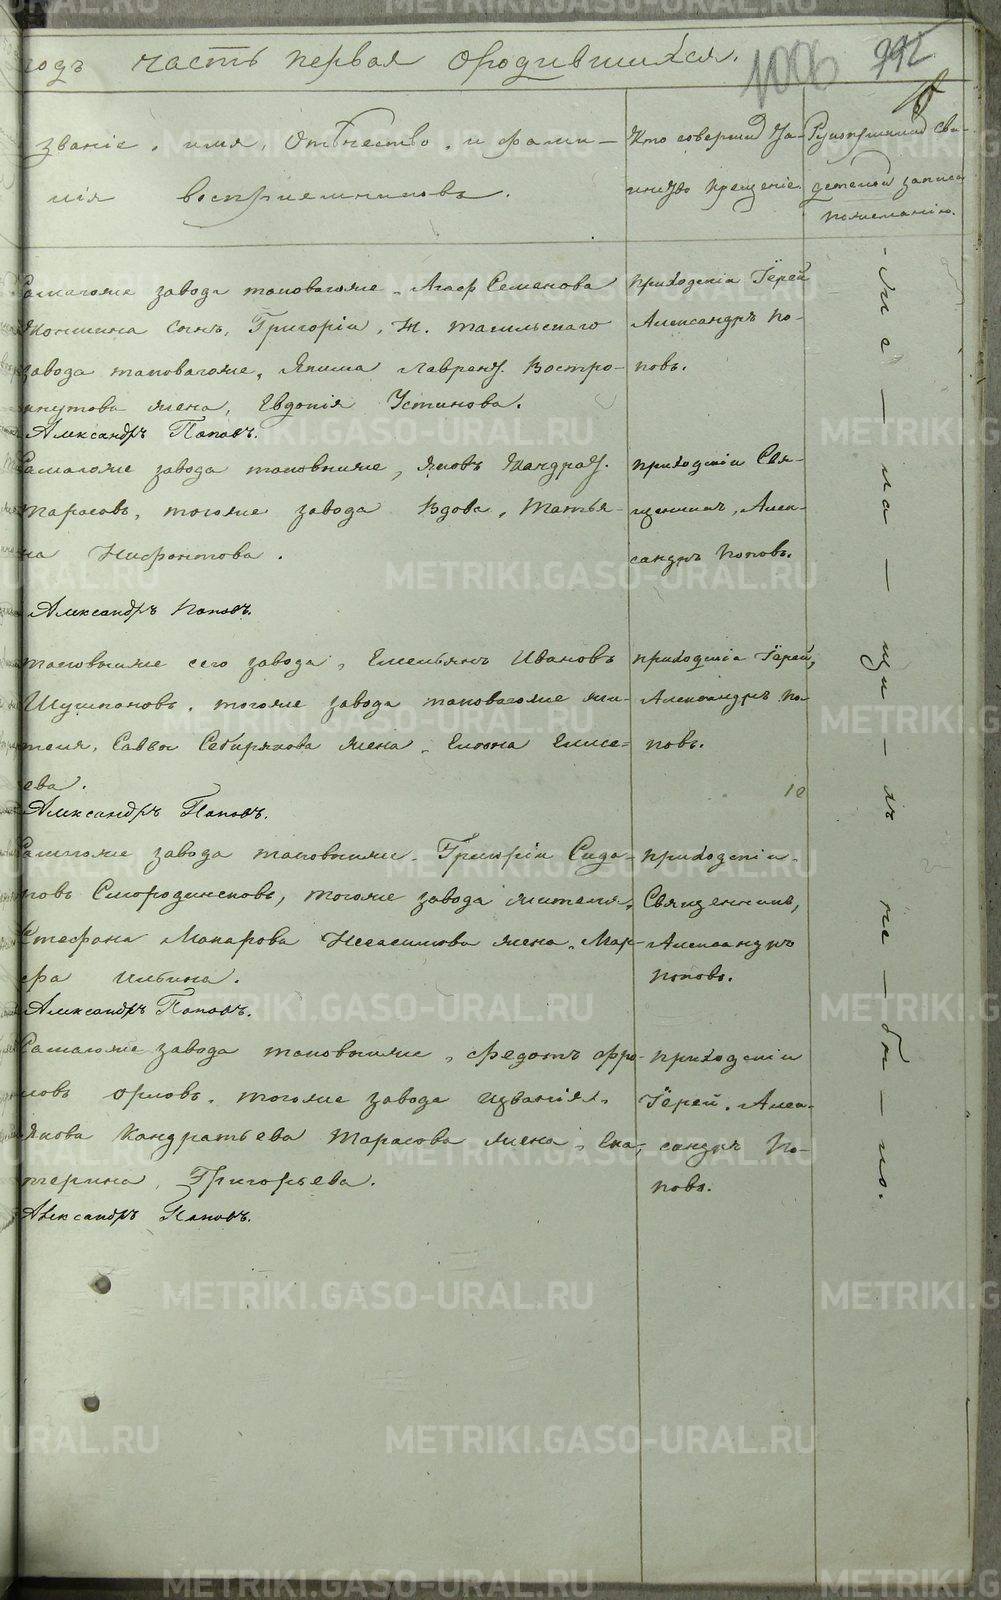 годъ часть первая о родившихся. 1006 992
званіе, имя, отчество, и фами-
лія воспріемниковъ.
Кто совершил та-
инство крещеніе.
Рукоприклад сви-
детелей записи
по желанію.
завода Агаф Семенова
сынъ, Григорій, Н. Тагильскаго
завода Якима Лаврен. Востро-
кнутова жена, Евдокія Устинова.
Александръ Поповъ.
приходскій Іерей
Александръ По-
повъ.
завода Яковъ Кандрат.
Тарасовъ, тогоже завода вдова, Татья-
на Нифонтова.
Александръ Поповъ.
приходскій Свя-
щенникъ, Алек-
сандръ Поповъ.
сего завода, Емельянъ Ивановъ
Шушпановъ, тогоже завода жи-
теля, Саввы Сибирякова жена, Елена Елисе-
ева.
Александръ Поповъ.
приходскій Іерей,
Александръ По-
повъ.
завода Григорій Сидо-
ровъ Смородинсковъ, тогоже завода жителя,
Стефана Макарова жена, Мар-
фа Ильина.
Александръ Поповъ.
приходскій
Священникъ,
Александръ
Поповъ.
завода Федотъ Фро-
ловъ Орловъ, тогоже завода и званія,
Якова Кандратьева Тарасова жена, Ека-
терина, Григорьева.
Александръ Поповъ.
приходскій
Іерей, Алек-
сандръ По-
повъ.
METRIKI.GASO-URAL.RU